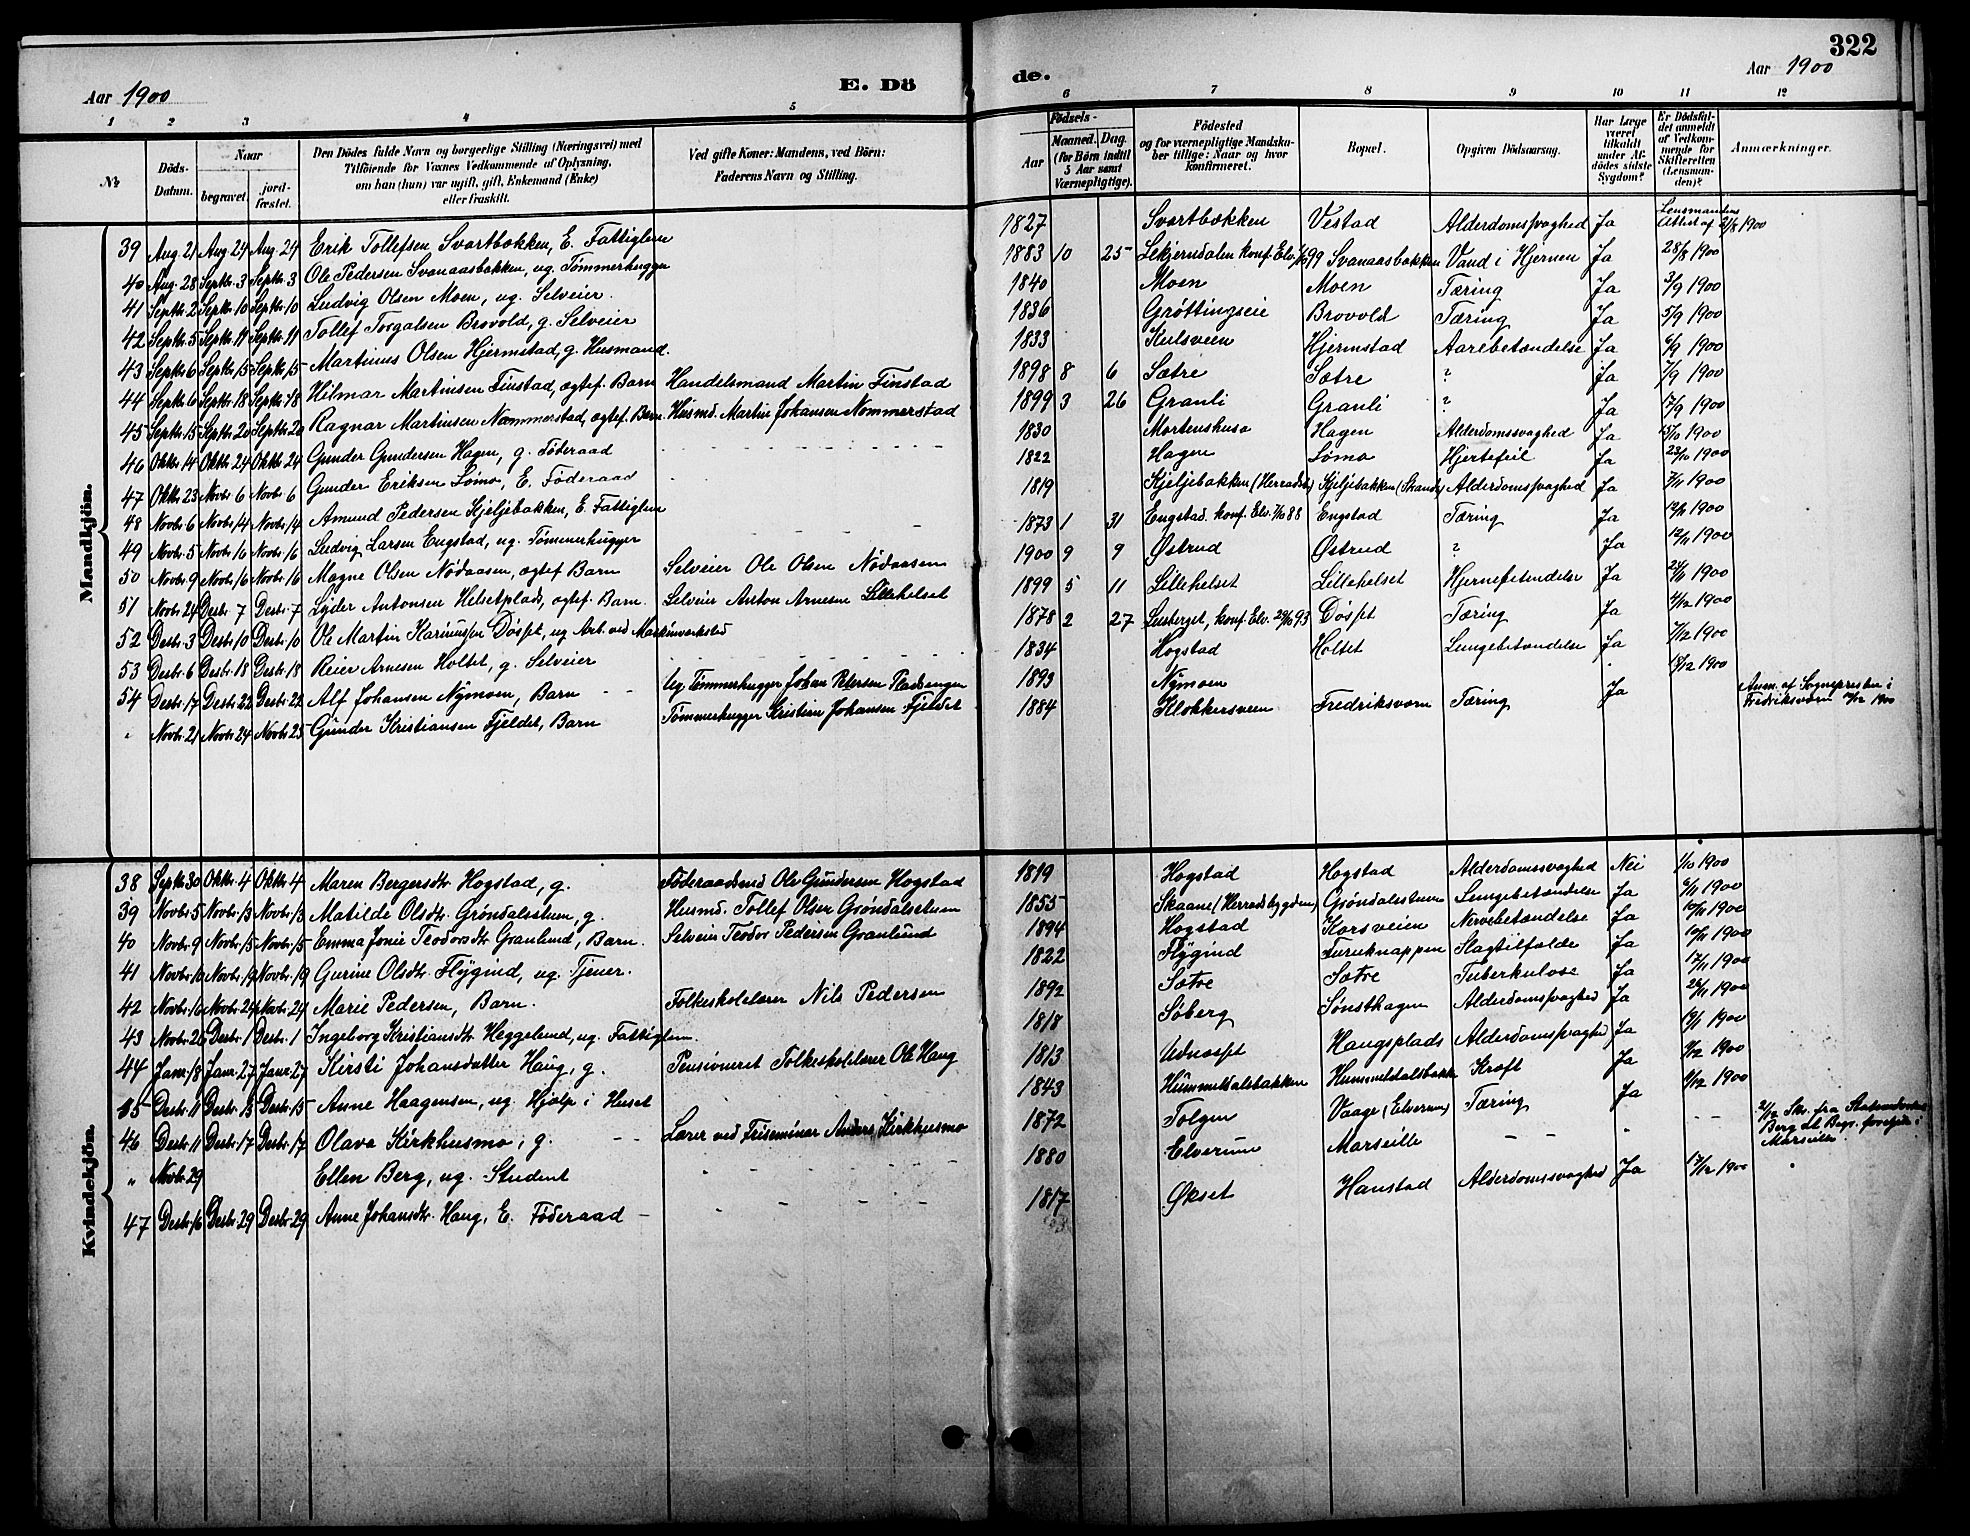 322
Aar 1900 E. Dö de. Aar 1900
1 2 3 4 5 6 7 8 9 10 11 12
№ Döds-Datum. Naar begravet. jordfæstet. Den Dödes fulde Navn og borgerlige Stilling (Næringsvei) med Tilföiende for Voxnes Vedkommende af Oplysning, om han (hun) var ugift, gift, Enkemand (Enke) eller fraskilt. Ved gifte Koner: Mandens, ved Börn: Faderens Navn og Stilling. Aar Födsels- Maaned. Dag. (for Börn indtil 5 Aar samt Værnepligtige). Födested og for værnepligtige Mandskaber tillige: Naar og hvor Konfirmeret. Bopæl. Opgiven Dödsaarsag. Har Læge været tilkaldt under Afdödes sidste Sygdom? Er Dödsfaldet anmeldt af Vedkommende for Skifteretten (Lensmanden)? Anmærkninger.
Mandkjön.
39 Aug. 21 Aug. 24 Aug. 24 Erik Tollefsen Svartbækken, E. Fattiglem 1827 Svartbækken Vestad Alderdomssvaghed Ja Lensmandens Attest af 21/8 1900
40 Aug. 28 Septbr. 3 Septbr. 3 Ole Pedersen Svanaasbakken, ug. Tømmerhugger 1883 10 25 Konf. Elv. 99 Svanaasbakken Vand i Hjernen Ja 28/8 1900
41 Septbr. 2 Septbr. 10 Septbr. 10 Ludvig Olsen Moen, ug. Selveier. 1840 Moen Moen Tæring Ja 3/9 1900
42 Septbr. 5 Septbr. 11 Septbr. 11 Tollef Torgalsen Brovold, g. Selveier 1836 Grøttingseie Brovold Tæring Ja 5/9 1900
43 Septbr. 6 Septbr. 15 Septbr. 15 Martinus Olsen Hjermstad, g. Husmand. 1833 Kulsveen Hjermstad Aarebetændelse Ja 6/9 1900
44 Septbr. 6 Septbr. 18 Septbr. 18 Hilmar Martinsen Finstad, ægtef. Barn Handelsmand Martin Finstad 1898 8 6 Sætre Sætre ? Ja 7/9 1900
45 Septbr. 15 Septbr. 20 Septbr. 20 Ragnar Martinsen Nommerstad, ægtef. Barn. Husmd. Martin Johansen Nommerstad 1899 3 26 Granli Granli ? Ja 17/9 1900
46 Oktbr. 14 Oktbr. 24 Oktbr. 24 Gunder Gundersen Hagen, g. Føderaad 1830 Mortenshusa Hagen Alderdomssvaghed Ja 15/10 1900
47 Oktbr. 23 Novbr. 6 Novbr. 6 Gunder Eriksen Sømo, E. Føderaad 1822 Hagen Sømo Hjertefeil Ja 23/10 1900
48 Novbr. 6 Novbr. 14 Novbr. 14 Amund Pedersen Kjeljebakken, E. Fattiglem 1819 Kjeljebakken (Herradsb.) Kjeljebakken (Strands) Alderdomssvaghed Ja 7/11 1900
49 Novbr. 5 Novbr. 16 Novbr. 16 Ludvig Larsen Engstad, ug. Tømmerhugger 1873 1 31 Engstad. konf. Elv. 7/10 88 Engstad Tæring Ja 12/11 1900
50 Novbr. 9 Novbr. 16 Novbr. 16 Magne Olsen Nødaasen, ægtef Barn Selveier Ole Olsen Nødaasen 1900 9 9 Østrud Østrud ? Ja 12/11 1900
51 Novbr. 24 Desbr. 7 Desbr. 7 Lyder Antonsen Helsetplads, ægtef. Barn. Selveier Anton Arnesen Lillehelset 1899 5 11 Lillehelset Lillehelset Hjernebetændelse Ja 24/11 1900
52 Desbr. 3 Desbr. 10 Desbr. 10 Ole Martin Karinussen Døsset, ug Arb. ved Maskinverksted 1878 2 27 konf. Elv. 29/10 93 Døsset Tæring Ja 4/12 1900
53 Desbr. 6 Desbr. 18 Desbr. 18 Reier Arnesen Holtet, g. Selveier 1834 Hogstad Holtet Lungebetændelse Ja 7/12 1900
54 Desbr. 17 Desbr. 22 Desbr. 22 Alf Johansen Nymoen, Barn Ug Tømmerhugger Johan Petersen Pladsengen 1893 Nymoen 18/12 1900
" Novbr. 21 Novbr. 24 Novbr. 25 Gunder Kristiansen Fjeldet, Barn Tømmerhugger Kristian Johansen Fjeldet 1884 Klokkersveen Fredriksværn Tæring Ja Anm. af Sognepresten i Fredriksværn 1900
Kvindekjön.
38 Septbr. 30 Oktbr. 4 Oktbr. 4 Maren Bergersdtr. Hogstad, g. Føderaadsmd Ole Gundersen Hogstad 1819 Hogstad Hogstad Alderdomssvaghed Nei 1/10 1900
39 Novbr. 5 Novbr. 13 Novbr. 13 Matilde Olsdtr. Grøndalsstuen, g. Husmd. Tollef Olsen Grøndalsstuen 1855 Skaane (Herradsbygden) Grøndalsstuen Lungebetændelse Ja 6/11 1900
40 Novbr. 9 Novbr. 15 Novbr. 15 Emma Jonie Teodorsdtr Granlund, Barn. Selveier Teodor Pedersen Granlund 1894 Hogstad Korsveien Nervebetændelse Ja 10/11 1900
41 Novbr. 10 Novbr. 19 Novbr. 19 Gurine Olsdtr. Flygind, ug. Tjener. 1822 Flygind Furuknappen Slagtilfælde Ja 10/11 1900
42 Novbr. 16 Novbr. 24 Novbr. 24 Marie Pedersen, Barn. Folkeskolelærer Nils Pedersen 1892 Sætre Sætre Tuberkulose Ja 17/11 1900
43 Novbr. 26 Desbr. 1 Desbr. 1 Ingeborg Kristiansdtr Heggelund, ug. Fattiglem. 1818 Søberg Sønsthagen Alderdomssvaghed Ja 28/11 1900
44 Janr. 18 Janr. 27 Janr. 27 Kirsti Johansdatter Haug, g. Pensioneret Folkeskolelærer Ole Haug 1813 Udnæsset Haugsplads Alderdomssvaghed Ja 19/1 1900
45 Desbr. 11 Desbr. 15 Desbr. 15 Anne Haagensen, ug. Hjælp i Huset 1843 Hummeldalsbakken Hummeldalsbakk Kræft Ja 1900
46 Desbr. 11 Desbr. 17 Desbr. 17 Olava Kirkhusmo, g. Lærer ved Friseminar Anders Kirkhusmo 1872 Tolgen Vaage (Elverum) Tæring Ja 1900
" Novbr. 29 Ellen Berg, ug. Student 1880 Elverum Marseille 2/12 Skr. fra Statsadvokat Berg Marseille.
47 Desbr. 16 Desbr. 29 Desbr. 29 Anne Johansdtr. Haug, E. Føderaad 1817 Økset Hanstad Alderdomssvaghed Ja 17/12 1900